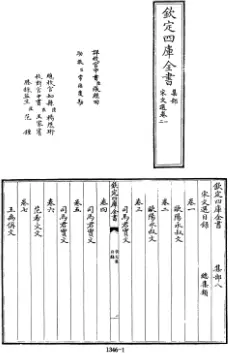 欽定四庫全書
集部
宋文選卷一二
詳校官中書臣
功
總校官知縣臣楊懋珩
校對官中書臣
謄錄監生臣范鏞
欽定四庫全書
集部八
宋文選目錄
總集類
卷一
歐陽永叔文
卷二
歐陽永叔文
卷三
司馬君實文
欽定四庫全書
宋文選
目錄
一
卷四
司馬君實文
卷五
司馬君實文
卷六
范希文文
卷七
王禹偁文
1346-1